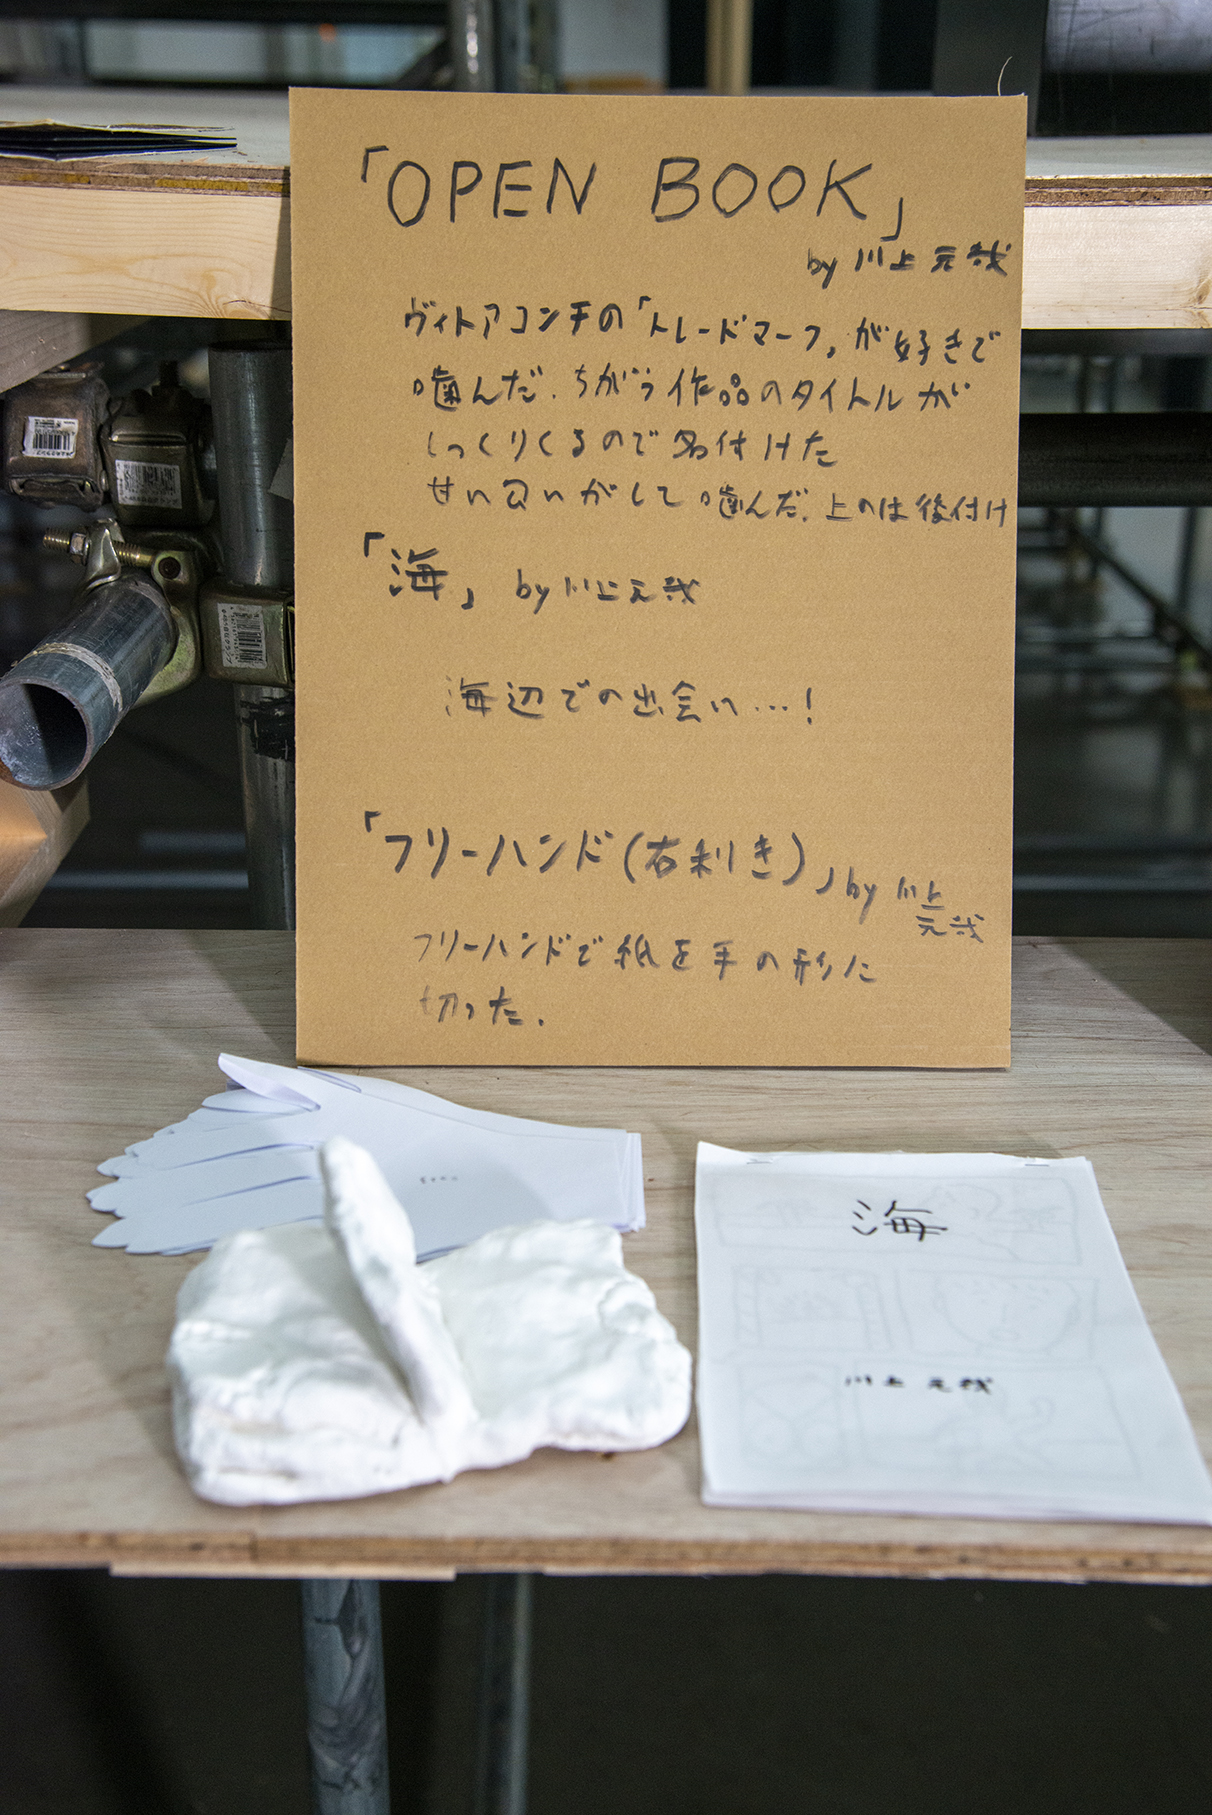 「OPEN BOOK」
by 川上 元哉
ヴィトアコンチの「トレードマーク」が好きで
噛んだ.ちがう作品のタイトルが
しっくりくるので名付けた
甘い匂いがして噛んだ.上のは後付け
「海」 by 川上元哉
海辺での出会い…!
「フリーハンド(右利き)」by 川上
元哉
フリーハンドで紙を手の形に
切った.
海
川上 元哉